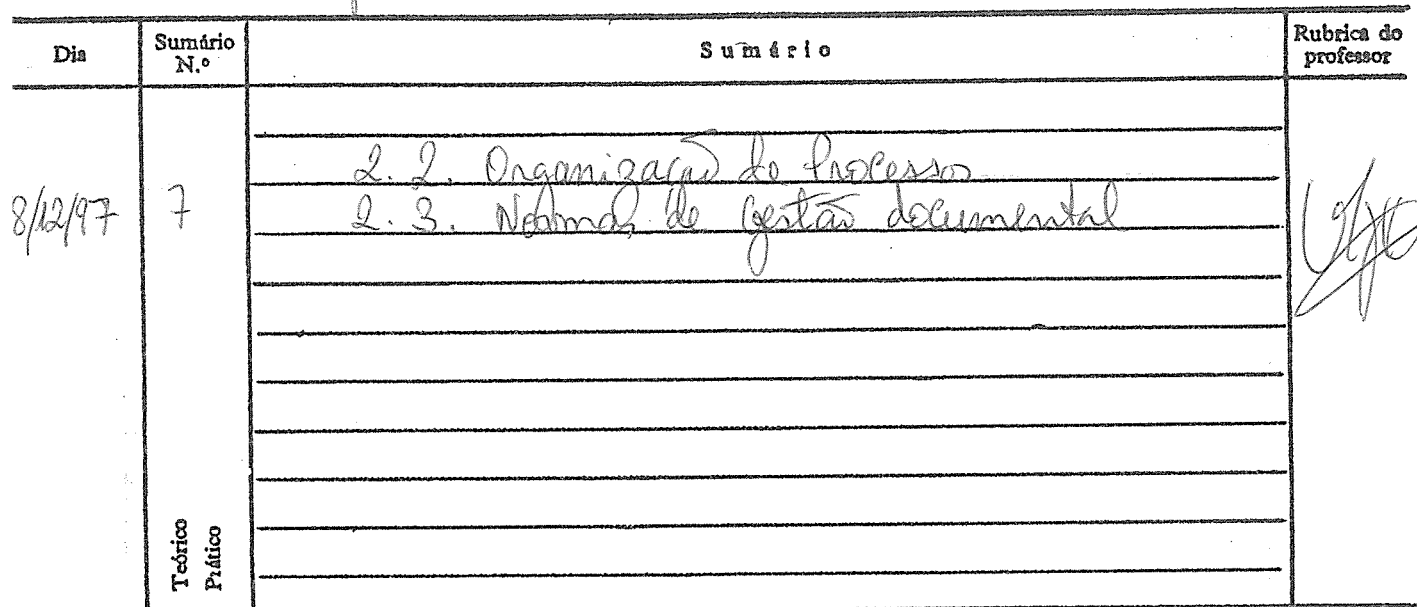 Dia
Sumário
N.º
Sumário
Rubrica do
professor
2.2. Organização do Processo
8/12/97 7 2.3. Normas de Gestão documental
Teórico
Prático